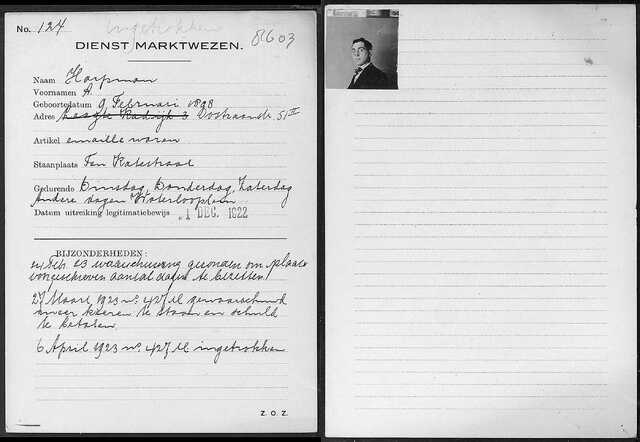 No. 124 ingetrokken
8603
DIENST MARKTWEZEN.
Naam Horpman
Voornamen A.
Geboortedatum 9 Februari 1898
Adres Laagte Kadijk 3 Oostzaanstr. 51 II
Artikel emaille waren
Staanplaats Ten Katestraat
Gedurende Dinsdag, Donderdag, Zaterdag
Andere dagen Waterlooplein
Datum uitreiking legitimatiebewijs 1 DEC. 1922
BIJZONDERHEDEN:
Feb. 23 waarschuwing gezonden om plaats
voorgeschreven aantal dagen te bezetten
27 Maart 1923 no. 427 M gewaarschuwd
meer keeren te staan en schuld
te betalen
6 April 1923 no. 427 M ingetrokken
Z. O. Z.